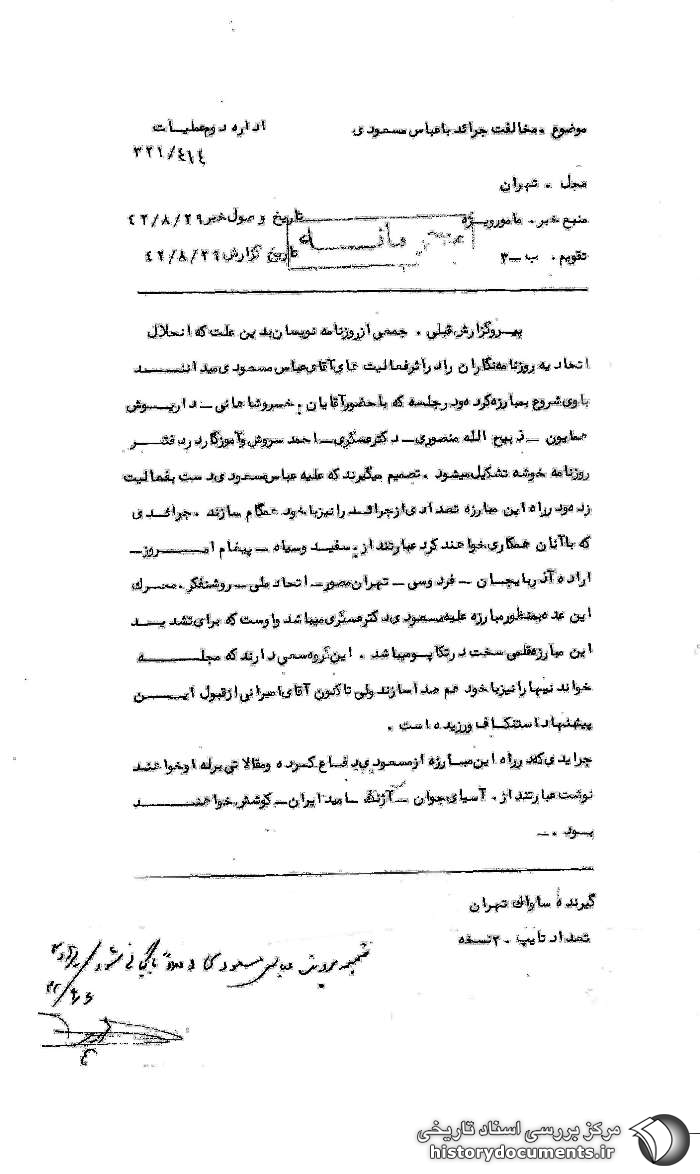 موضوع . مخالفت جرائد با عباس مسعودی
اداره دوم عملیات
۳۲۱/۴۱۴
محل . تهران
منبع خبر . مامور ویژه
تاریخ وصول خبر ۴۲/۸/۲۹
تقویم . ب – ۳
تاریخ گزارش ۴۲/۸/۲۹
پیرو گزارش قبلی . جمعی از روزنامه نویسان بدین علت که انحلال
اتحادیه روزنامه‌نگاران را در اثر فعالیت های آقای عباس مسعودی میدانند
با وی شروع بمبارزه کرده و در جلسه که با حضور آقایان . خسرو شاهانی – داریوش
همایون – ذبیح الله منصوری – دکتر عسگری – احمد سروش و آموزگار در دفتر
روزنامه خوشه تشکیل میشود . تصمیم میگیرند که علیه عباس مسعودی دست بفعالیت
زده و در راه این مبارزه تعدادی از جرائد را نیز با خود همگام سازند . جرائدی
که با آنان همکاری خواهند کرد عبارتند از . سفید و سیاه – پیغام امروز –
اراده آذربایجان – فردوسی – تهران مصور – اتحاد ملی – روشنفکر . محرک
این عده بمنظور مبارزه علیه مسعودی دکتر عسگری میباشد و اوست که برای تشدید
این مبارزه قلمی سخت در تکاپو میباشد . این گروه سعی دارند که مجله
خواندنیها را نیز با خود هم صدا سازند ولی تاکنون آقای امیرانی از قبول این
پیشنهاد استنکاف ورزیده است .
جرایدی که در راه این مبارزه از مسعودی دفاع کرده و مقالاتی برله او خواهند
نوشت عبارتند از . آسیای جوان – آژنگ – امید ایران – کوشش خواهند
بود . –
گیرنده ساواک تهران
تعداد تایپ . ۲ نسخه
ضمیمه پرونده عباس مسعودی بایگانی شود
مرکز بررسی اسناد تاریخی
historydocuments.ir